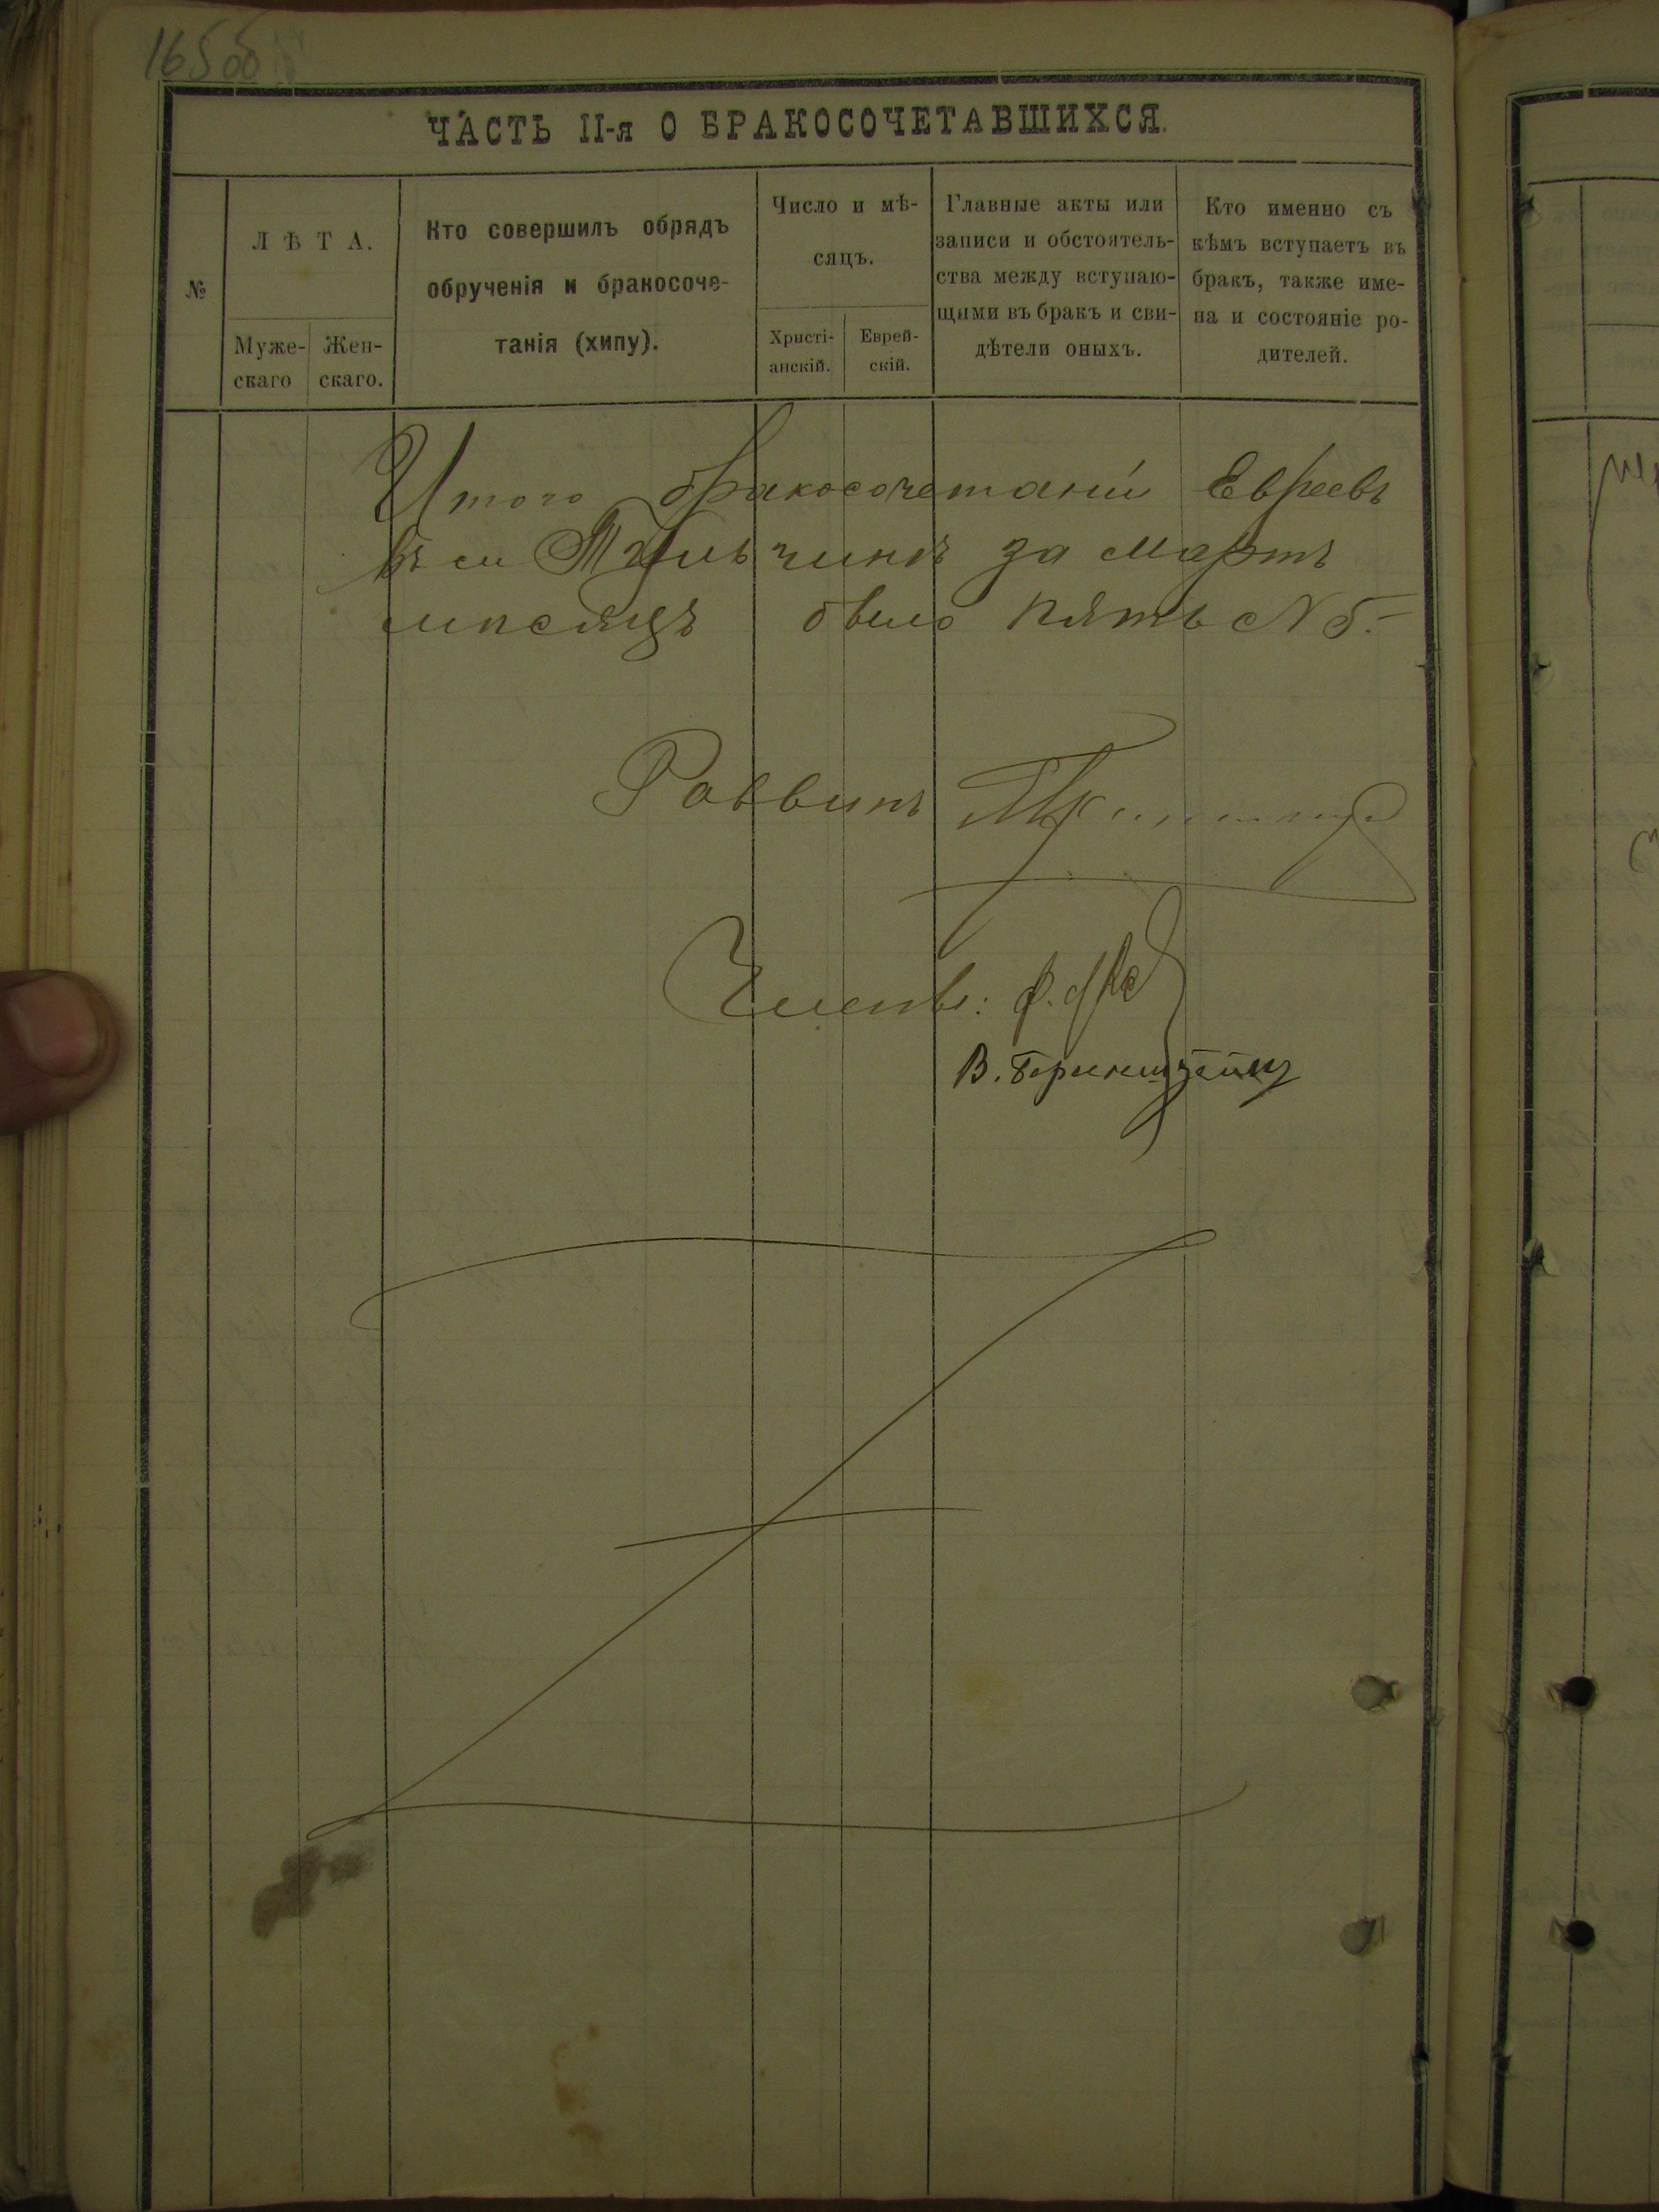 165об
ЧАСТЬ II-я О БРАКОСОЧЕТАВШИХСЯ.
№
ЛѢТА.
Муже-
скаго
Жен-
скаго.
Кто совершилъ обрядъ
обрученія и бракосоче-
танія (хипу).
Число и мѣ-
сяцъ.
Христі-
анскій.
Еврей-
скій.
Главные акты или
записи и обстоятель-
ства между вступаю-
щими въ бракъ и сви-
дѣтели оныхъ.
Кто именно съ
кѣмъ вступаетъ въ
бракъ, также име-
на и состояніе ро-
дителей.
Итого бракосочетаній Евреевъ
въ м Тульчинѣ за Мартъ
мѣсяцъ было пять № 5.-
Раввинъ
Члены:
В. Беринштейн